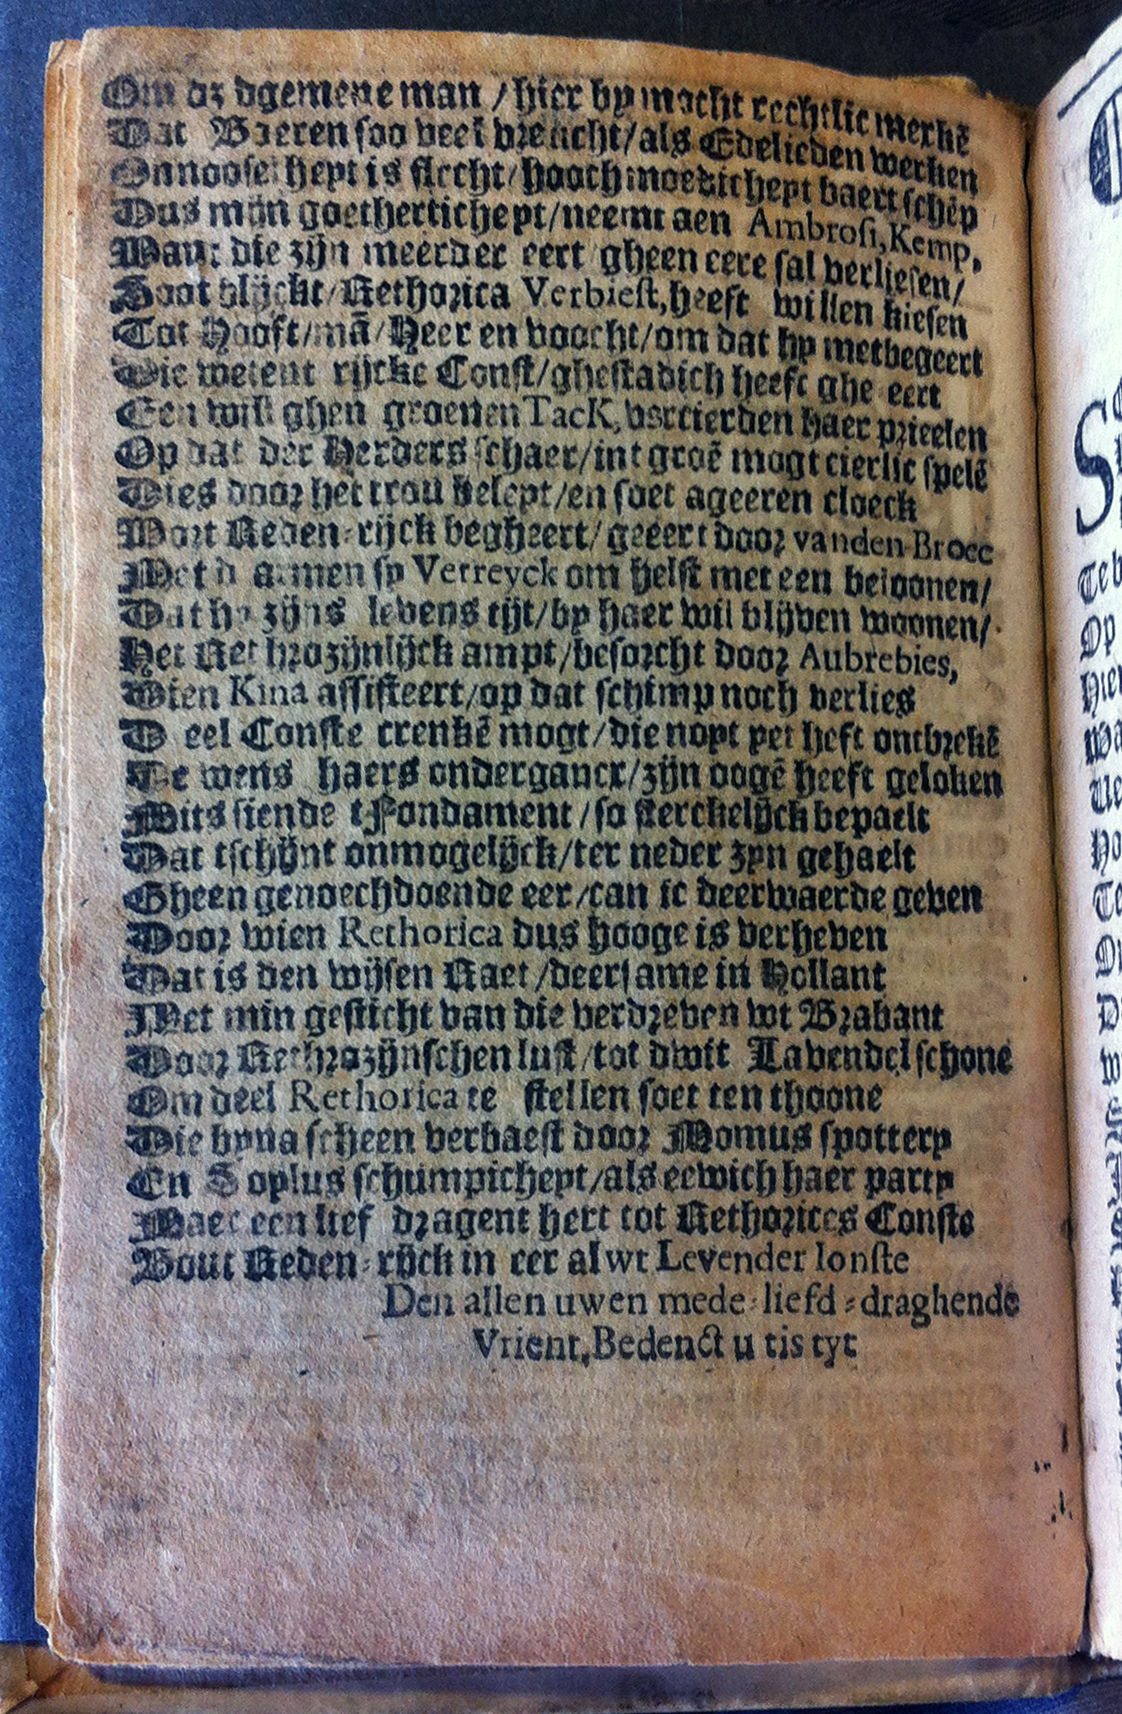 Om dz dgemene man / hier by mocht rechtlic merkē
Dat Boeren soo veel vreucht/als Edelieden werken
Onnoosel heyt is slecht/hooch moedicheyt baert schēp
Dus mijn goethertichept/neemt aen Ambrosi, Kemp,
Want die zijn meerder eert gheen eere sal verliesen/
Soot blijckt/Rethorica Verbiest, heeft willen kiesen
Tot Hooft/mā/Heer en voocht/om dat hy metbegeert
Die wetent rijcke Const/ghestadich heeft ghe eert
Een will ghen groenen TacK, vercierden haer prieelen
Op dat der Herders schaer/int groē mogt cierlic spelē
Dies door het trou beleyt/en soet ageeren cloeck
Wort Reden-rijck begheert/geeert door vanden Broec
Met d armen sy Verreyck om helst met een beloonen/
Dat hy zijns levens tijt/by haer wil blijven woonen/
Het Ret hrozijnlijck ampt/besorcht door Aubrebies,
Wien Kina assisteert/op dat schimp noch verlies
D eel Conste crenkē mogt/die noyt yet heft ontbrekē
De wens haers onderganck/zijn oogē heeft geloken
Mits siende t Fondament/so sterckelijck bepaelt
Dat tschijnt onmogelijck/ter neder zyn gehaelt
Gheen genoechdoende eer/can ic deerwaerde geven
Door wien Rethorica dus hooge is verheven
Dat is den wijsen Raet/deersame in Hollant
Met min gesticht van die verdreven wt Brabant
Door Rethrozijnschen lust/tot dwit Lavendel schone
Om deel Rethorica te stellen soet ten thoone
Die byna scheen verbaest door Momus spottery
En Soylus schumpicheyt/als eewich haer party
Maer een lief dragent hert tot Rethorices Conste
Bout Reden-rijck in eer al wt Levender Ionste
Den allen uwen mede-liefd-draghende
Vrient, Bedenct u tis tyt